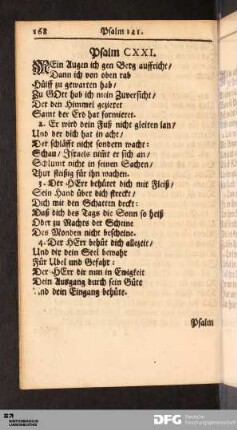 168 Psalm 121.
Psalm CXXI.
MEin Augen ich gen Berg auffricht/
Dann ich von oben rab
Hülff zu gewarten hab/
Zu GOtt hab ich mein Zuversicht/
Der den Himmel gezieret
Samt der Erd hat formieret.
2. Er wird dein Fuß nicht gleiten lan/
Und der dich hat in acht/
Der schläfft nicht sondern wacht:
Schau/ Israels nim̃t er sich an/
Schlumt nicht in seinen Sachen/
Thut fleißig für ihn wachen.
3. Der HErr behütet dich mit Fleiß/
Sein Hand über dich streckt/
Dich mit den Schatten deckt:
Daß dich des Tags die Sonn so heiß
Oder zu Nachts der Scheine
Des Monden nicht bescheine.
4. Der HErr behüt dich allezeit/
Und dir dein Seel bewahr
Für Ubel und Gefahr:
Der HErr dir nun in Ewigkeit
Dein Ausgang durch sein Güte
Und dein Eingang behüte.
Psalm
DFG Deutsche
Forschungsgemeinschaft